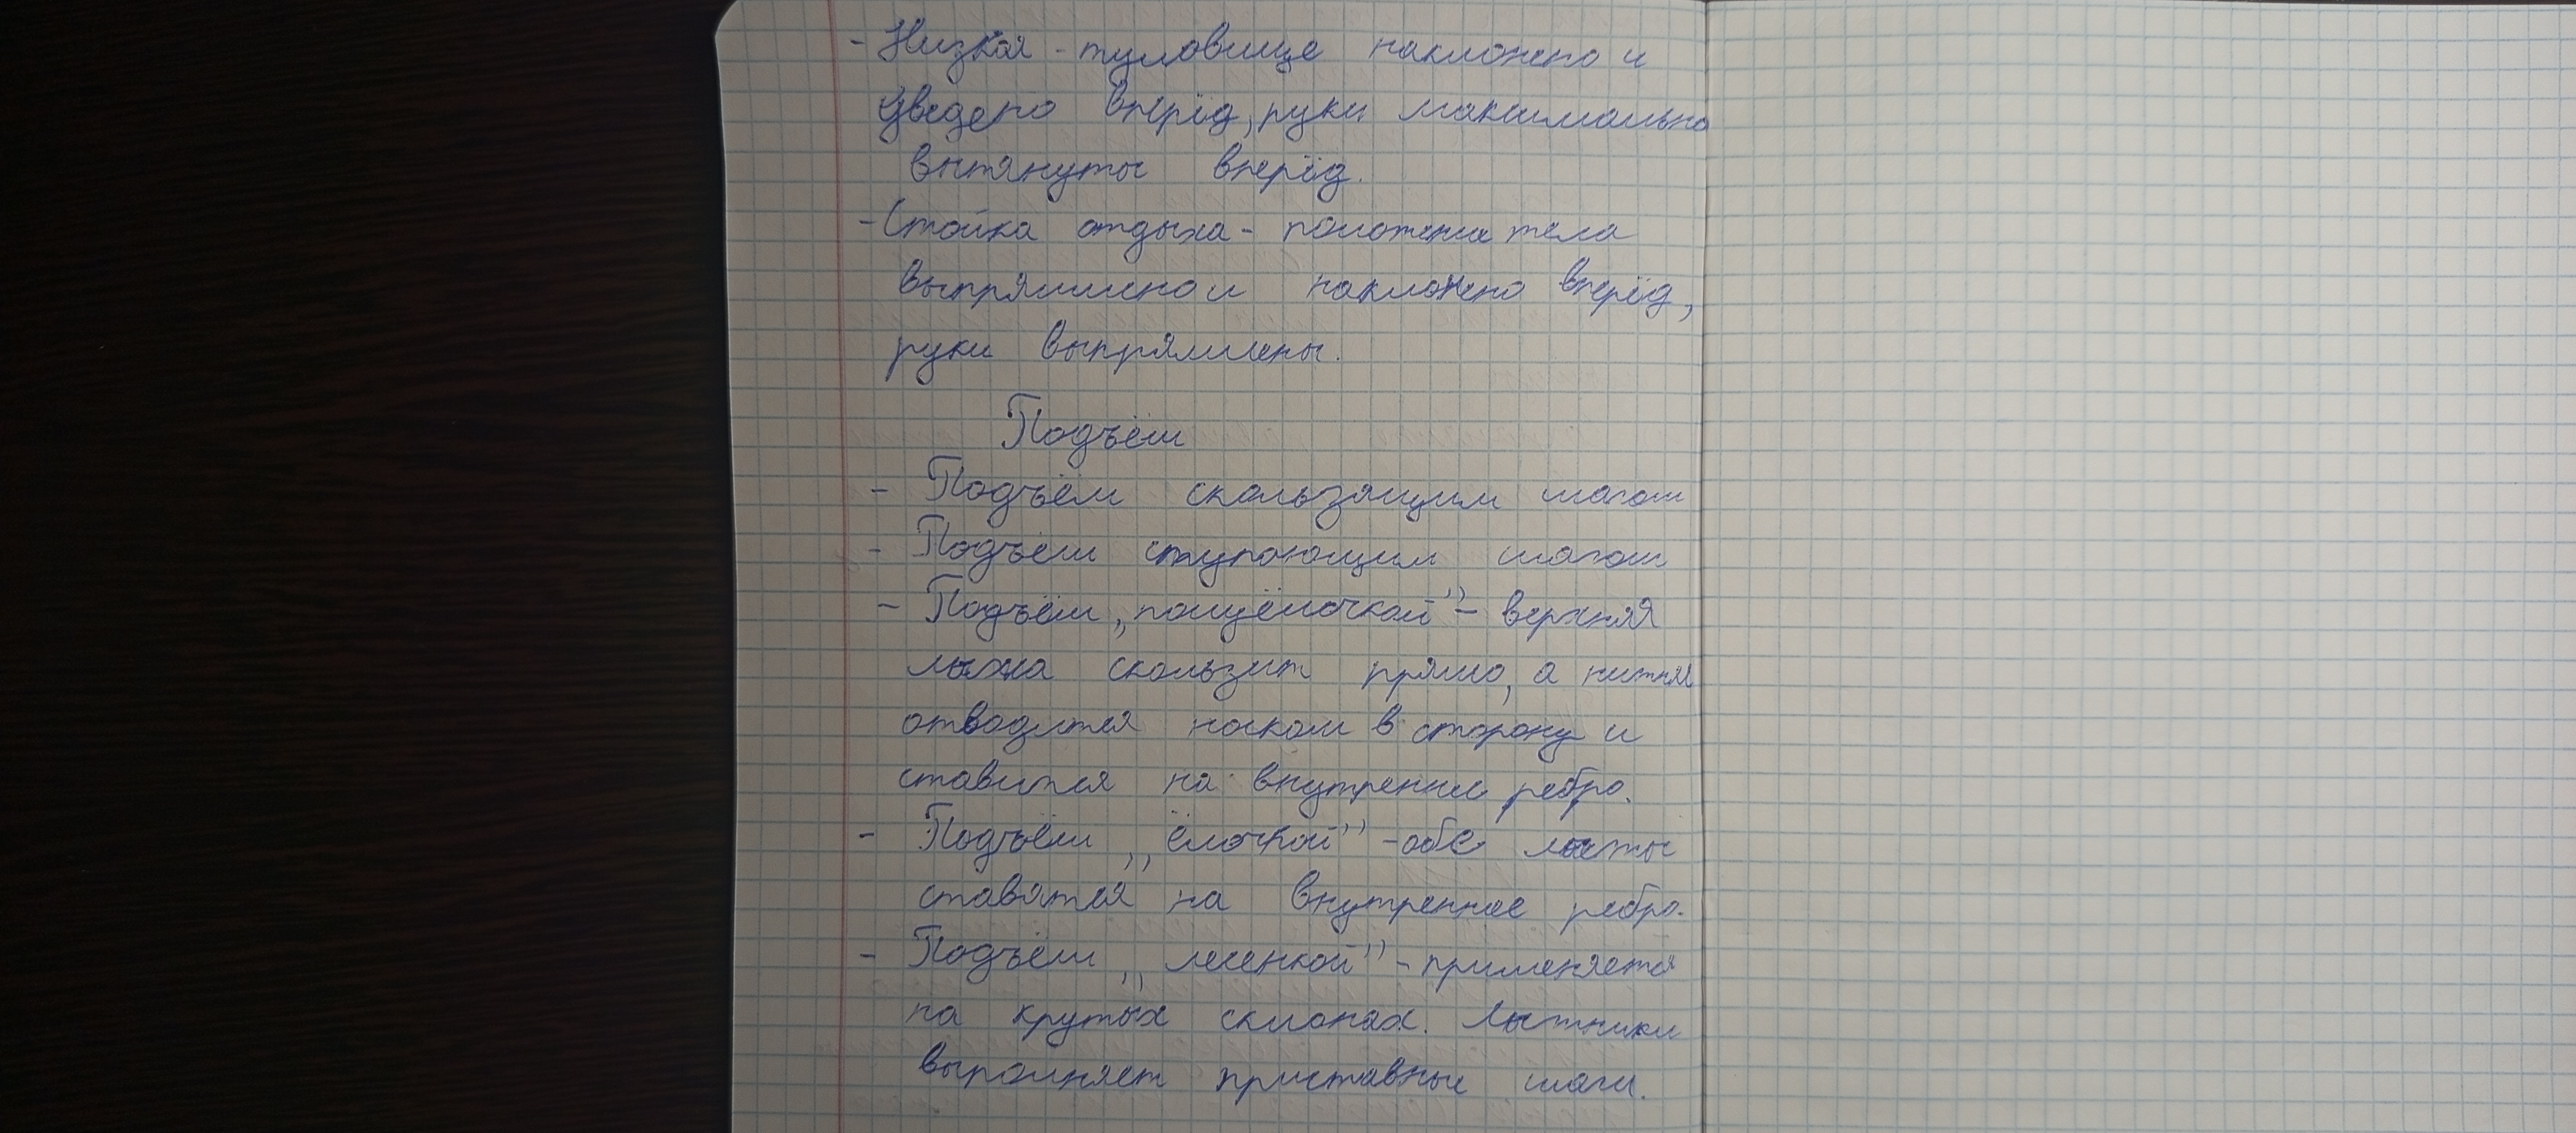 - Низкая - туловище наклонено и
уведено вперёд, руки максимально
вытянуты вперёд.
- Стойка отдыха - положение тела
выпрямлено и наклонено вперёд,
руки выпрямлены.
Подъём
- Подъём скользящим шагом
- Подъём ступающим шагом
- Подъём „полуёлочкой” - верхняя
лыжа скользит прямо, а нижняя
отводится носком в сторону и
ставится на внутреннее ребро.
- Подъём „ёлочкой” - обе лыжы
ставятся на внутреннее ребро.
- Подъём „лесенкой” - применяется
на крутых склонах. Лыжники
выполняет приставные шаги.